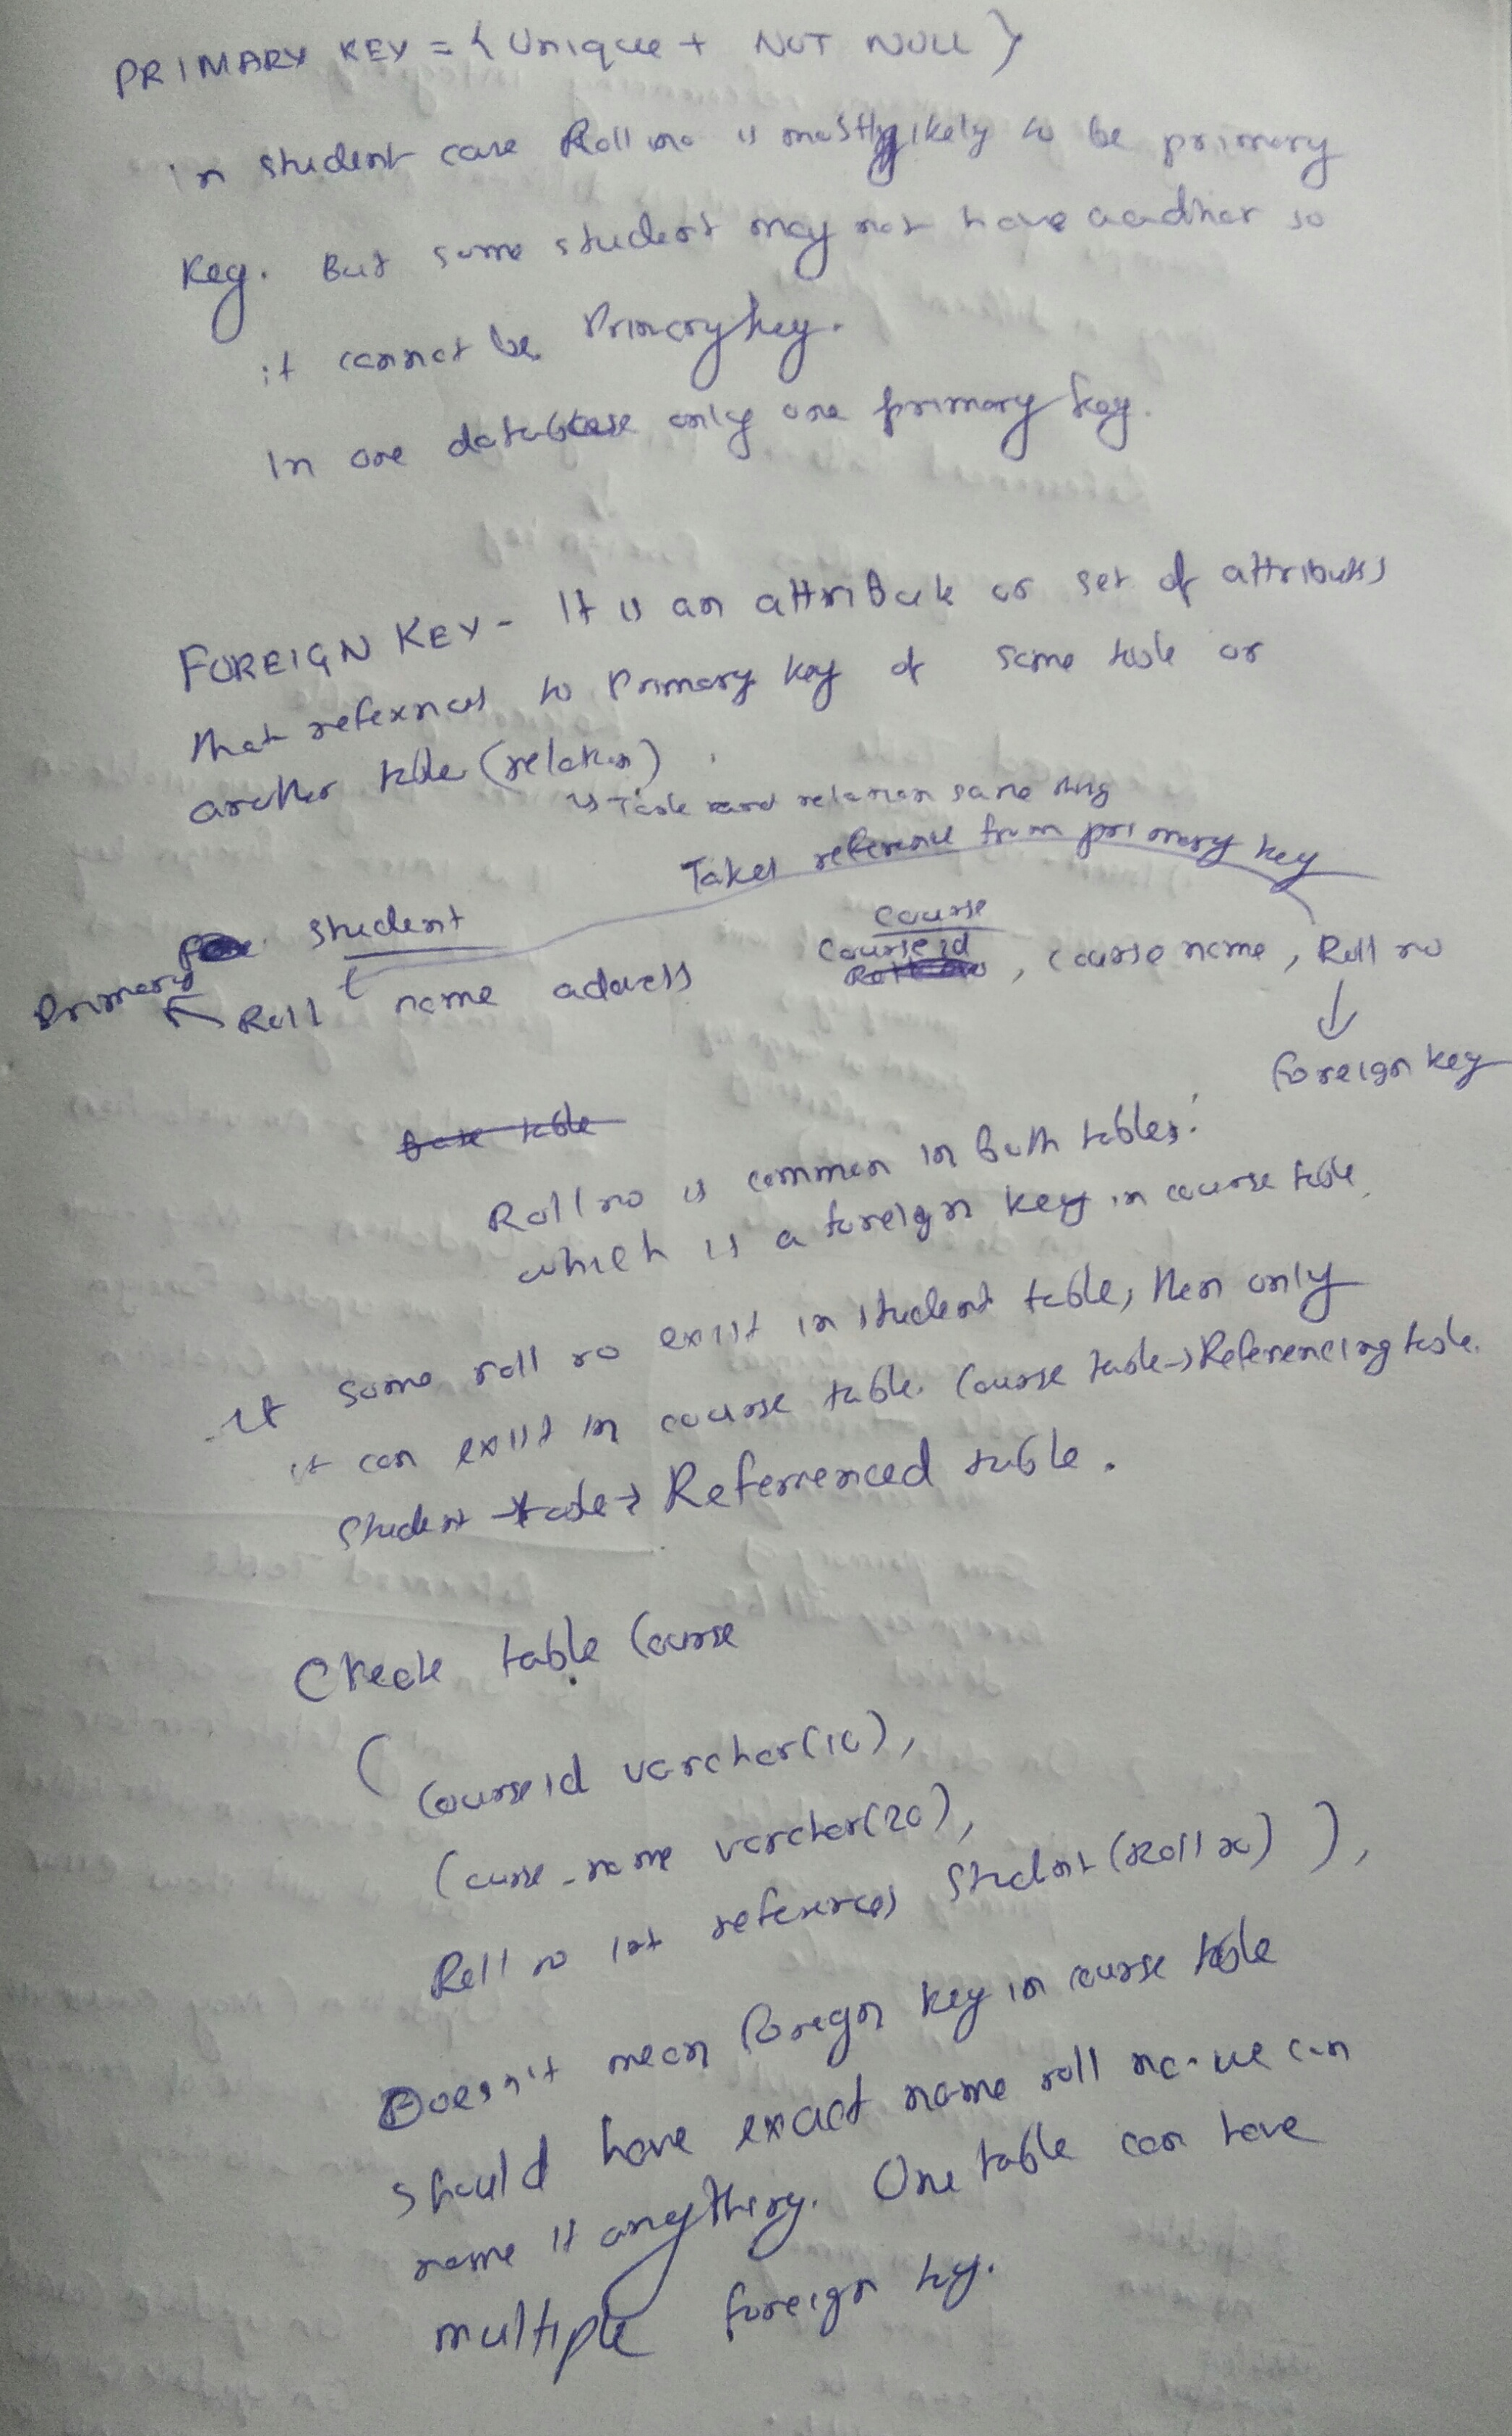 PRIMARY KEY = { Unique + NOT NULL }
in student case Roll no is mostly likely to be primary
key. But some student may not have aadhar so
it cannot be Primary key.
In one database only one primary key.
FOREIGN KEY - It is an attribute or set of attributes
that references to Primary key of same table or
another table (relation)
↳ Table and relation same thing
Takes reference from primary key
Student
Course
Primary ← Roll name address
Course id, Course name, Roll no
↓
foreign key
base table
Roll no is common in both tables.
which is a foreign key in course table.
If some roll no exist in student table, then only
it can exist in course table. Course table → Referencing table.
Student table → Referrenced table.
Create table Course
( Courseid varchar(10),
Course_name varchar(20),
Roll no int references Student (Roll no) ),
Doesn't mean foregn key in course table
should have exact name roll no. we can
name it anything. One table can have
multiple foreign key.